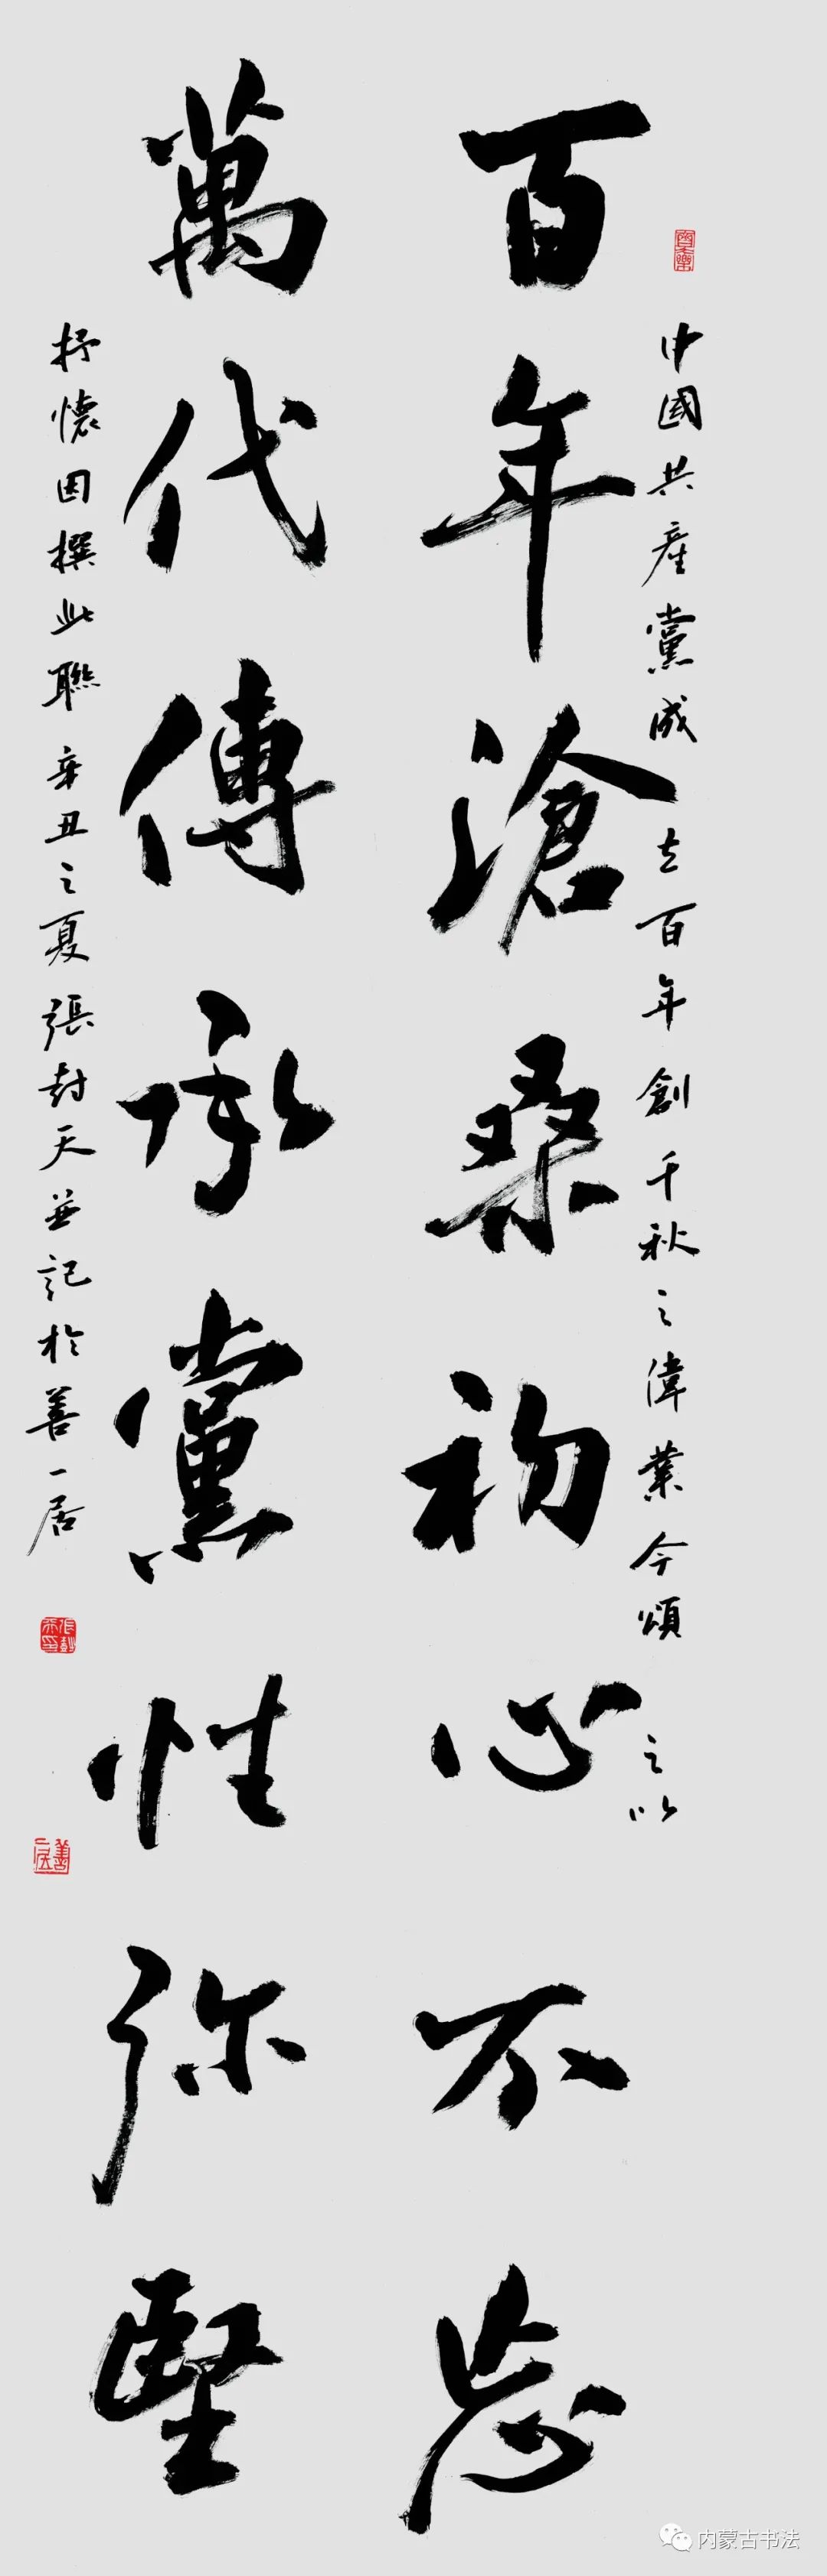 中國共產黨成立百年創千秋之偉業今頌之以
百年滄桑初心不忘
萬代傳承黨性弥堅
抒懷因撰此聯辛丑之夏張封天並記於善一居
善一居
内蒙古书法